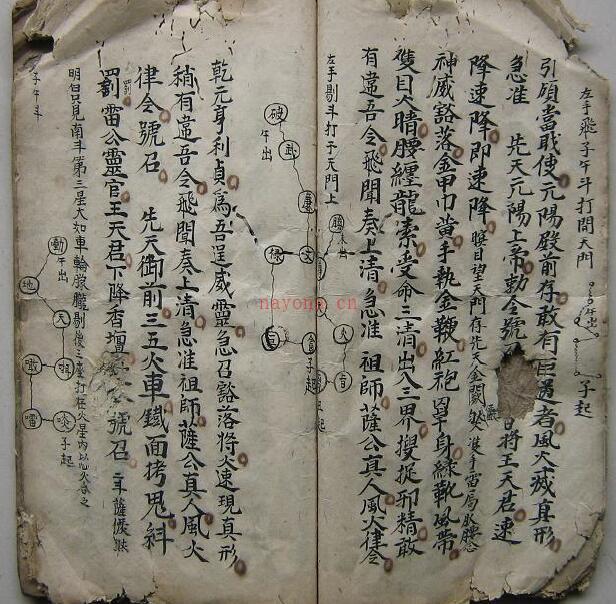 左手飛子午斗打開天門
午出
子起
引頭當戢使元陽殿前存敢有巨遇者風火滅真形
急准 先天元陽上帝勅令號 日將王天君速
降速降即速降 瞑目望天門存先天金闕 雙手雷局
神威豁落金甲巾黃手執金鞭紅袍罩身綠靴風帶
雙目火睛腰纏龍索受命三清出入三界搜捉邪精敢
有違吾令飛聞奏上清急准 祖師薩公真人風火律令
左手剔斗打于天門上
破
武
午出
廉
文
祿
巨
未出
火
子起
乾元亨利貞為吾逞威靈急召豁落將火速現真形
稍有違吾令飛聞奏上清急准祖師薩公真人風火
律令號召 先天御前三五火車鐵面拷鬼糾
罰雷公靈官王天君下降香壇 號召
明目只見南斗第三星大如車輪朦朧剔後三座打在火星內以心火合之
子午斗
動
午出
地
天
啖
子起
nayong.cn